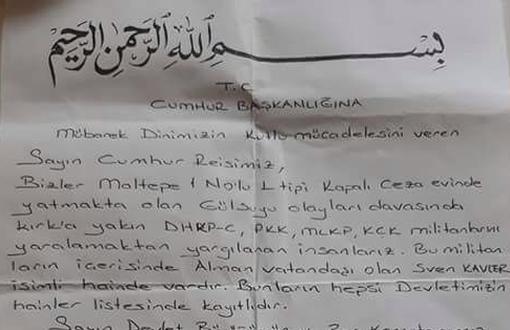 بِسْمِ اللهِ الرَّحْمٰنِ الرَّحِيمِ
T.C
CUMHUR BAŞKANLIĞINA
Mübarek Dinimizin Kutlu mücadelesini veren
Sayın Cumhur Reisimiz,
Bizler Maltepe 1 No'lu L tipi Kapalı Ceza evinde
yatmakta olan Gülsuyu olayları davasında
kırk'a yakın DHKP-C, PKK, MLKP, KCK militanlarını
yaralamaktan yargılanan insanlarız. Bu militan
ların içerisinde Alman vatandaşı olan Sven KAVLER
isimli hainde vardır. Bunların hepsi Devletimizin
hainler listesinde kayıtlıdır.
Sayın Devlet